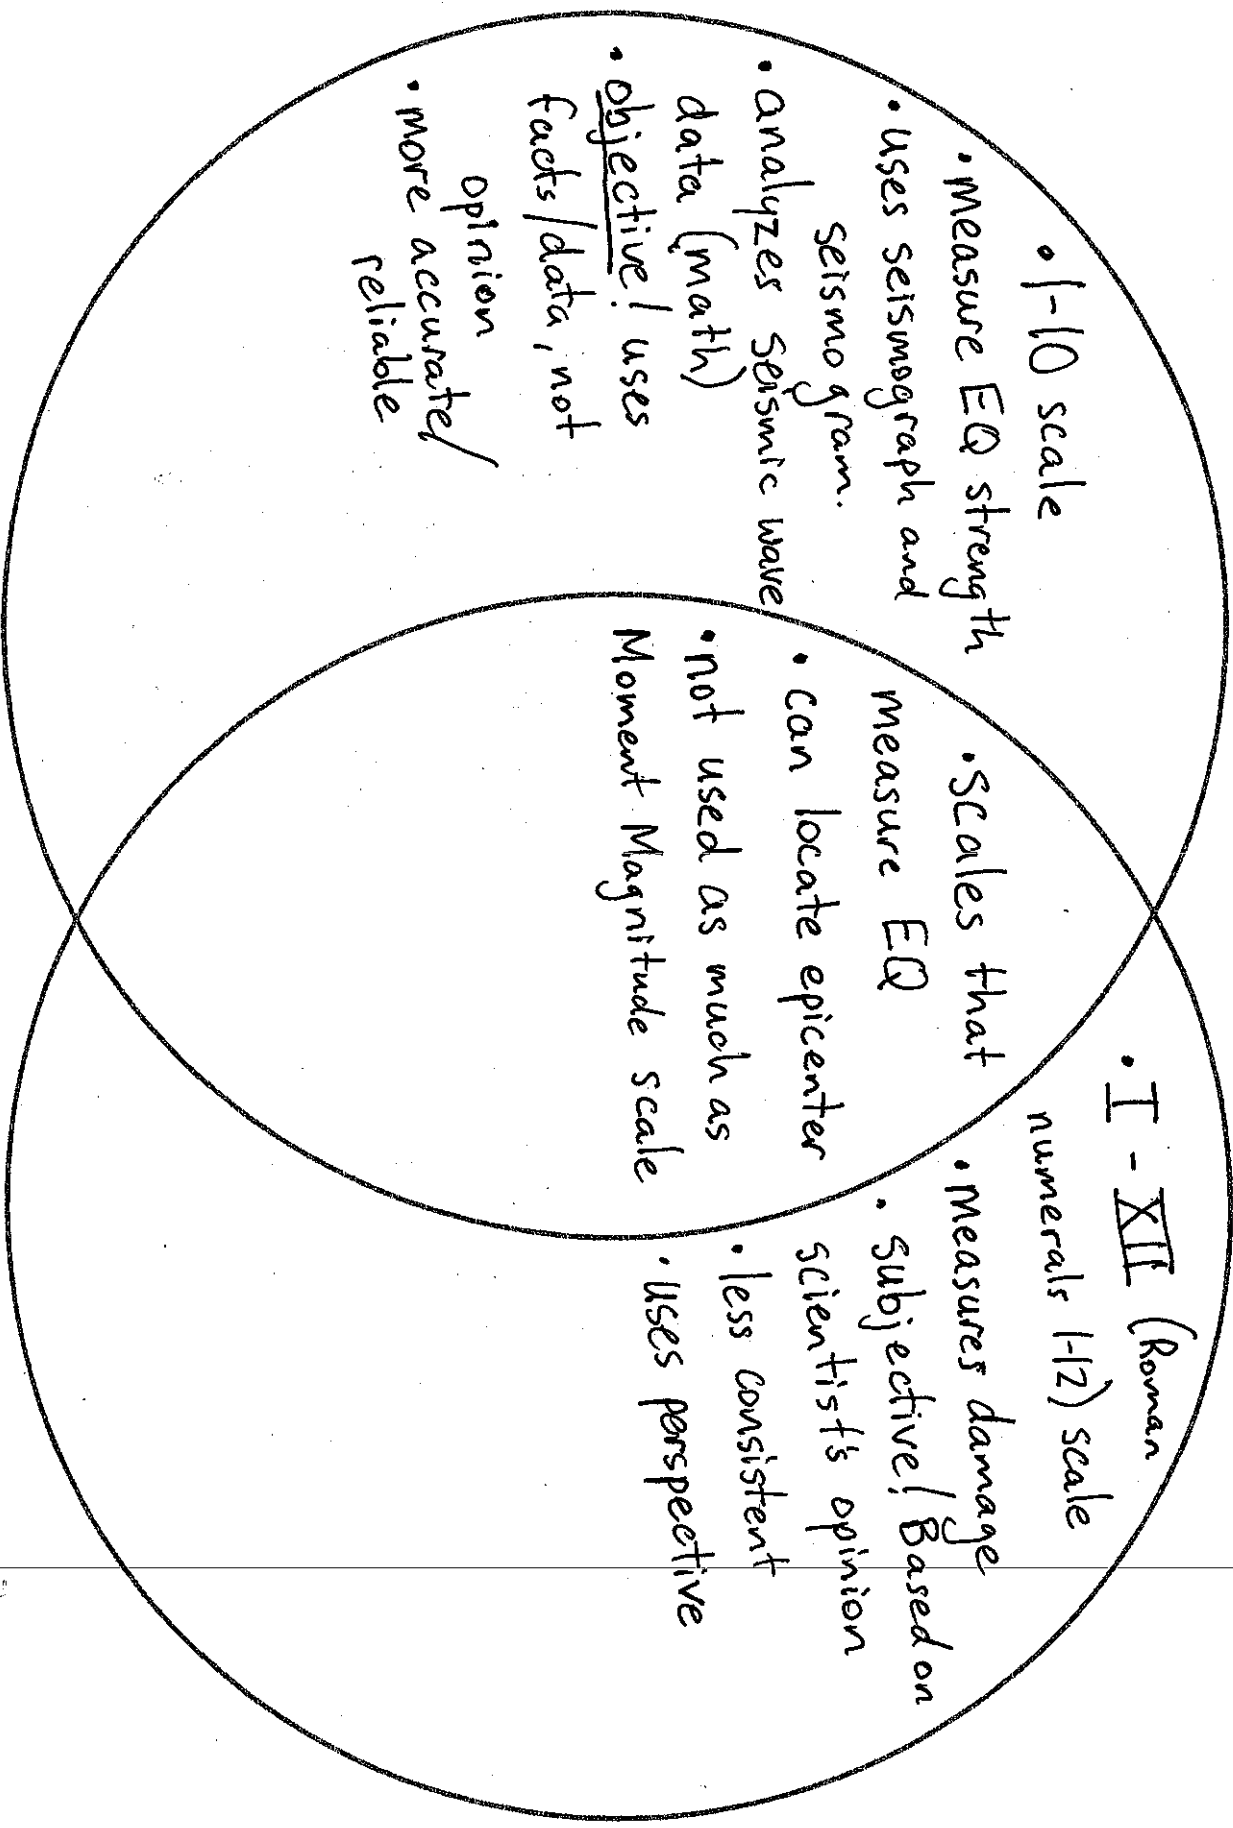 • 1-10 scale
• measure EQ strength
• uses seismograph and
seismogram.
• analyzes seismic wave
data (math)
• objective! uses
facts/data, not
opinion
• more accurate/
reliable
• Scales that
measure EQ
• can locate epicenter
• not used as much as
Moment Magnitude scale
• I - XII (Roman
numerals 1-12) scale
• measures damage
• subjective! Based on
scientist's opinion
• less consistent
• uses perspective